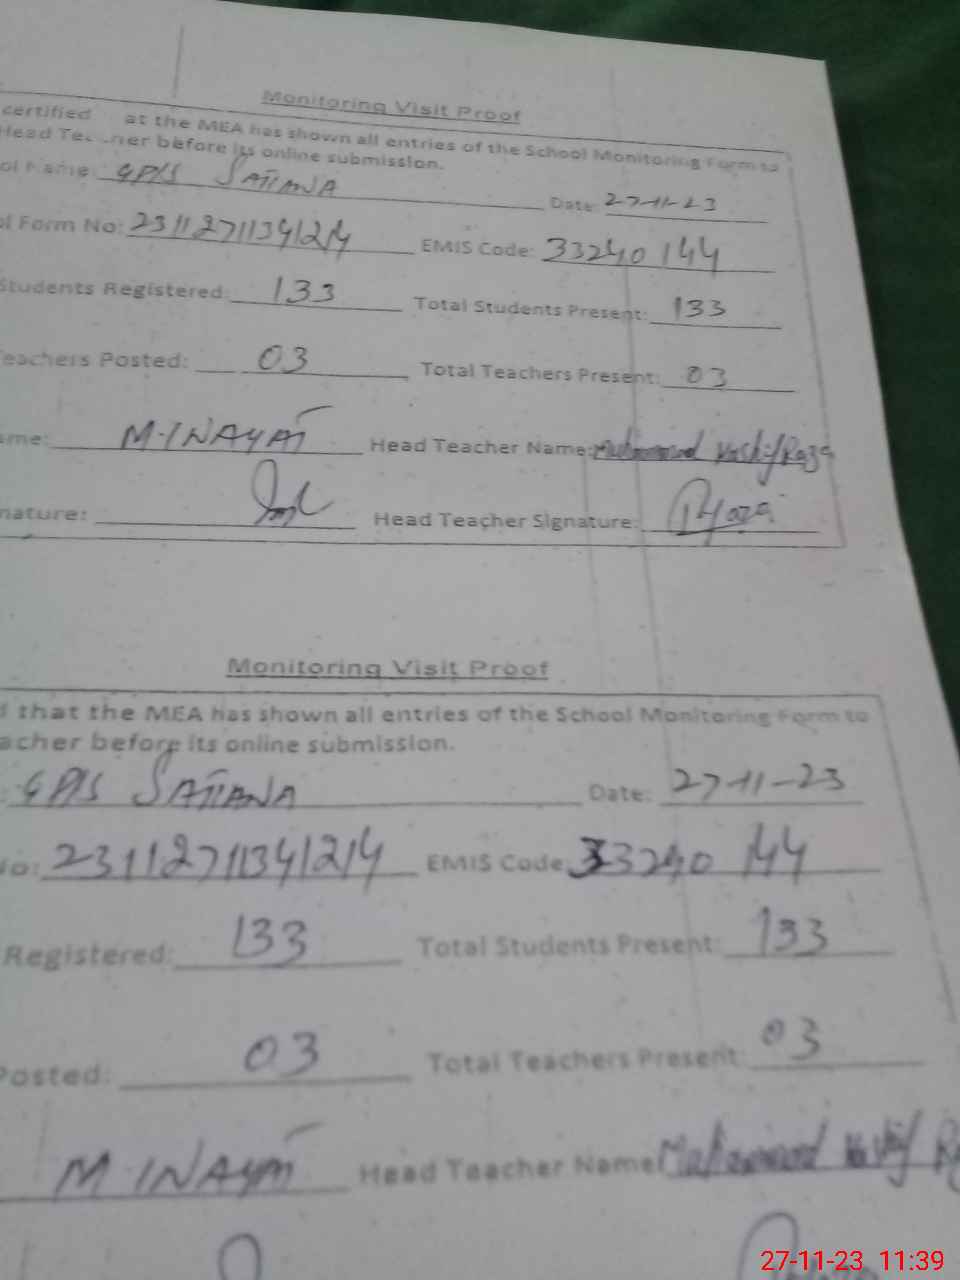 Monitoring Visit Proof
certified at the MEA has shown all entries of the School Monitoring Form to
Head Teacher before its online submission.
ol Name: GPIS SATIANA Date: 27-11-23
ol Form No: 23112711341214 EMIS Code: 33240144
Students Registered: 133 Total Students Present: 133
Teachers Posted: 03 Total Teachers Present: 03
ame: M.INAYAT Head Teacher Name: Muhammad Raza
nature: Head Teacher Signature:
Monitoring Visit Proof
d that the MEA has shown all entries of the School Monitoring Form to
acher before its online submission.
GPIS SATIANA Date: 27-11-23
No: 23112711341214 EMIS Code: 33240144
Registered: 133 Total Students Present: 133
Posted: 03 Total Teachers Present: 03
M INAYAT Head Teacher Name Muhammad
27-11-23 11:39